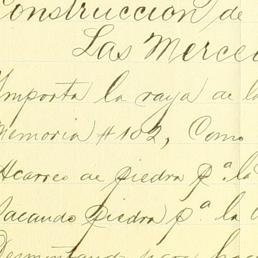 Construccion de
Las Merced
Importa la raya de la
Memoria #102, Como
Acarreo de piedra pª. la
Sacando Piedra pª. la
Desmontando